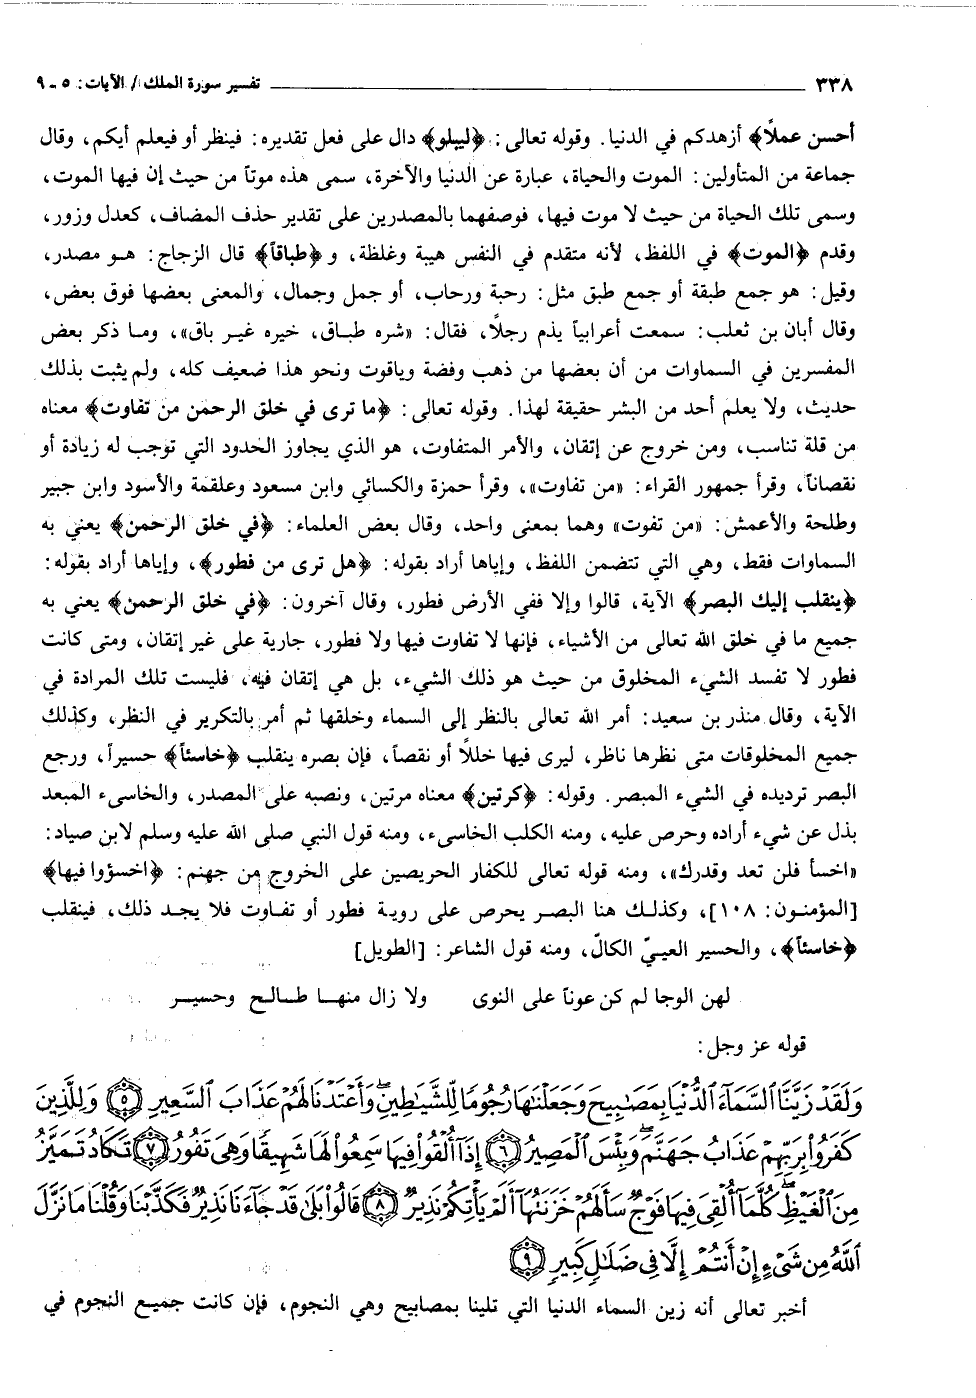 ٣٣٨ تفسير سورة الملك / الآيات: ٥ - ٩
أحسن عملاً﴾ أزهدكم في الدنيا. وقوله تعالى: ﴿ليبلو﴾ دال على فعل تقديره: فينظر أو فيعلم أيكم، وقال
جماعة من المتأولين: الموت والحياة، عبارة عن الدنيا والآخرة، سمى هذه موتاً من حيث إن فيها الموت،
وسمى تلك الحياة من حيث لا موت فيها، فوصفهما بالمصدرين على تقدير حذف المضاف، كعدل وزور،
وقدم ﴿الموت﴾ في اللفظ، لأنه متقدم في النفس هيبة وغلظة، و﴿طباقاً﴾ قال الزجاج: هو مصدر،
وقيل: هو جمع طبقة أو جمع طبق مثل: رحبة ورحاب، أو جمل وجمال، والمعنى بعضها فوق بعض،
وقال أبان بن ثعلب: سمعت أعرابياً يذم رجلاً، فقال: «شره طباق، خيره غير باق»، وما ذكر بعض
المفسرين في السماوات من أن بعضها من ذهب وفضة وياقوت ونحو هذا ضعيف كله، ولم يثبت بذلك
حديث، ولا يعلم أحد من البشر حقيقة لهذا. وقوله تعالى: ﴿ما ترى في خلق الرحمن من تفاوت﴾ معناه
من قلة تناسب، ومن خروج عن إتقان، والأمر المتفاوت، هو الذي يجاوز الحدود التي توجب له زيادة أو
نقصاناً، وقرأ جمهور القراء: «من تفاوت»، وقرأ حمزة والكسائي وابن مسعود وعلقمة والأسود وابن جبير
وطلحة والأعمش: «من تفوت» وهما بمعنى واحد، وقال بعض العلماء: ﴿في خلق الرحمن﴾ يعني به
السماوات فقط، وهي التي تتضمن اللفظ، وإياها أراد بقوله: ﴿هل ترى من فطور﴾، وإياها أراد بقوله:
﴿ينقلب إليك البصر﴾ الآية، قالوا وإلا ففي الأرض فطور، وقال آخرون: ﴿في خلق الرحمن﴾ يعني به
جميع ما في خلق الله تعالى من الأشياء، فإنها لا تفاوت فيها ولا فطور، جارية على غير إتقان، ومتى كانت
فطور لا تفسد الشيء المخلوق من حيث هو ذلك الشيء، بل هي إتقان فيه، فليست تلك المرادة في
الآية، وقال منذر بن سعيد: أمر الله تعالى بالنظر إلى السماء وخلقها ثم أمر بالتكرير في النظر، وكذلك
جميع المخلوقات متى نظرها ناظر، ليرى فيها خللاً أو نقصاً، فإن بصره ينقلب ﴿خاسئاً﴾ حسيراً، ورجع
البصر ترديده في الشيء المبصر. وقوله: ﴿كرتين﴾ معناه مرتين، ونصبه على المصدر، والخاسىء المبعد
بذل عن شيء أراده وحرص عليه، ومنه الكلب الخاسىء، ومنه قول النبي صلى الله عليه وسلم لابن صياد:
«اخسأ فلن تعد وقدرك»، ومنه قوله تعالى للكفار الحريصين على الخروج من جهنم: ﴿اخسؤوا فيها﴾
[المؤمنون: ١٠٨]، وكذلك هنا البصر يحرص على روية فطور أو تفاوت فلا يجد ذلك، فينقلب
﴿خاسئاً﴾، والحسير العييّ الكالّ، ومنه قول الشاعر: [الطويل]
لهن الوجا لم كن عوناً على النوى ولا زال منها طالح وحسير
قوله عز وجل:
وَلَقَدْ زَيَّنَّا السَّمَاءَ الدُّنْيَا بِمَصَابِيحَ وَجَعَلْنَاهَا رُجُومًا لِّلشَّيَاطِينِ وَأَعْتَدْنَا لَهُمْ عَذَابَ السَّعِيرِ ٥ وَلِلَّذِينَ
كَفَرُوا بِرَبِّهِمْ عَذَابُ جَهَنَّمَ وَبِئْسَ الْمَصِيرُ ٦ إِذَا أُلْقُوا فِيهَا سَمِعُوا لَهَا شَهِيقًا وَهِيَ تَفُورُ ٧ تَكَادُ تَمَيَّزُ
مِنَ الْغَيْظِ كُلَّمَا أُلْقِيَ فِيهَا فَوْجٌ سَأَلَهُمْ خَزَنَتُهَا أَلَمْ يَأْتِكُمْ نَذِيرٌ ٨ قَالُوا بَلَى قَدْ جَاءَنَا نَذِيرٌ فَكَذَّبْنَا وَقُلْنَا مَا نَزَّلَ
اللَّهُ مِن شَيْءٍ إِنْ أَنتُمْ إِلَّا فِي ضَلَالٍ كَبِيرٍ ٩
أخبر تعالى أنه زين السماء الدنيا التي تلينا بمصابيح وهي النجوم، فإن كانت جميع النجوم في